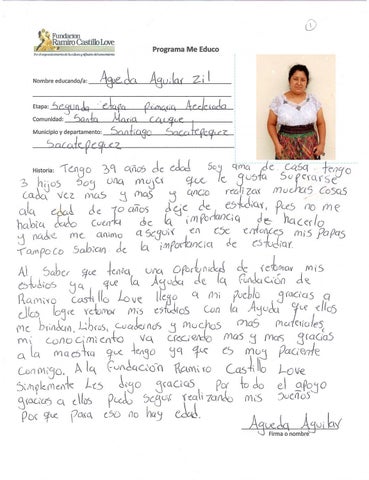 1
Fundacion
Ramiro Castillo Love
Programa Me Educo
Nombre educando/a: Agueda Aguilar Zil
Etapa: Segunda etapa primaria Acelerada
Comunidad: Santa Maria Cauque
Municipio y departamento: Santiago Sacatepequez
Sacatepequez
Historia: Tengo 39 años de edad soy ama de casa tengo
3 hijos soy una mujer que le gusta superarse
cada vez mas y mas y ancio realizar muchas cosas
ala edad de 10 años deje de estudiar, pues no me
habia dado cuenta de la importancia de hacerlo
y nadie me animo a seguir en ese entonces mis Papas
Tampoco sabian de la importancia de estudiar.
Al saber que tenia, una oportunidad de retomar mis
estudios ya que la Ayuda de la Fundación de
Ramiro castillo Love llego a mi pueblo gracias a
ellos, logre retomar mis estudios con la Ayuda que ellos
me brindan, Libros, cuadernos y muchos mas materiales,
mi conocimiento va creciendo mas y mas gracias
a la maestra que tengo ya que es muy Paciente
conmigo. A la Fundación Ramiro Castillo Love
simplemente Les digo gracias por todo el apoyo
gracias a ellos puedo seguir realizando mis sueños
Por que para eso no hay edad.
Agueda Aguilar
Firma o nombre